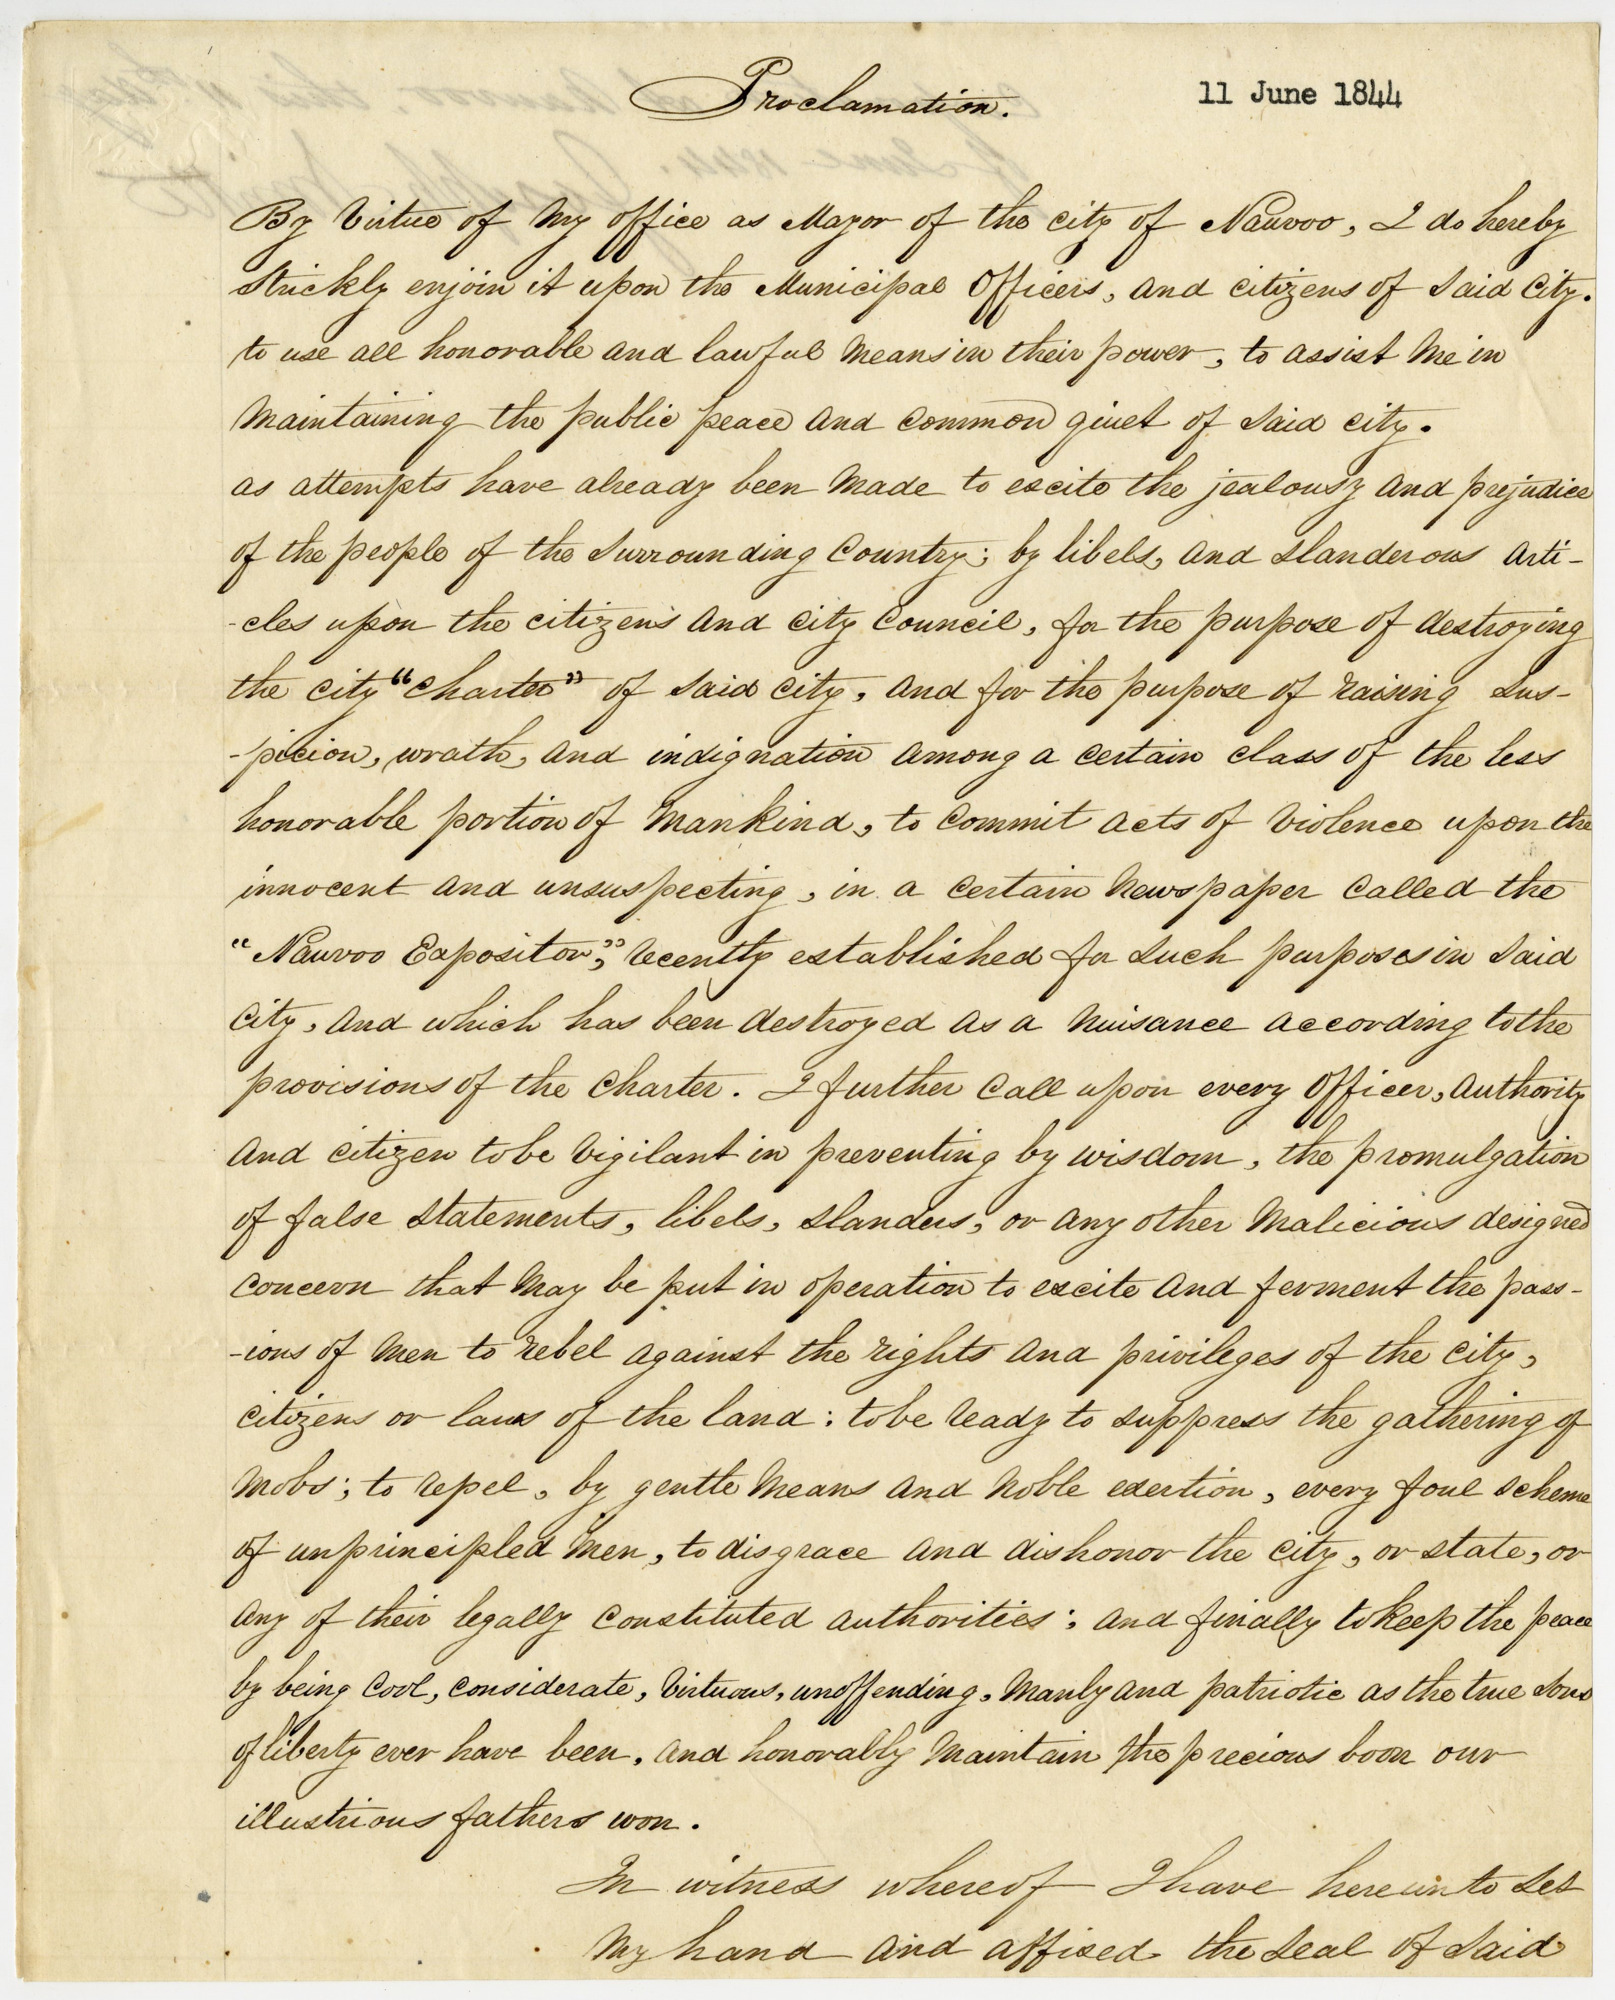 Proclamation. 11 June 1844
By Virtue of My office as Mayor of the city of Nauvoo, I do hereby
Strickly enjoin it upon the Municipal Officers, and citizens of Said City.
to use all honorable and lawful Means in their power, to assist Me in
Maintaining the public peace and common qiuet of Said city.
as attempts have already been Made to excite the jealousy and prejudice
of the people of the Surrounding Country; by libels, and slanderous arti-
-cles upon the citizens and City Council, for the purpose of destroying
the city "Charter" of Said City, and for the purpose of raising Sus-
-picion, wrath, and indignation among a certain class of the less
honorable portion of Mankind, to commit acts of Violence upon the
innocent and unsuspecting, in a certain Newspaper called the
"Nauvoo Expositor," recently established for Such purposes in Said
City, and which has been destroyed as a Nuisance according to the
provisions of the Charter. I further Call upon every Officer, Authority
and citizen to be Vigilant in preventing by wisdom, the promulgation
of false Statements, libels, slanders, or any other Malicious designed
concern that May be put in operation to excite and ferment the pass-
-ions of Men to rebel against the rights and privileges of the City,
citizens or laws of the land: to be ready to suppress the gathering of
Mobs; to repel, by gentle Means and Noble exertion, every foul scheme
of unprincipled Men, to disgrace and dishonor the city, or state, or
any of their legally constituted authorities; and finally to keep the peace
by being Cool, considerate, Virtuous, unoffending, Manly and patriotic as the true Sons
of liberty ever have been, and honorably Maintain the precious boon our
illustrious fathers won.
In witness whereof I have hereunto Set
My hand and affixed the Seal of Said